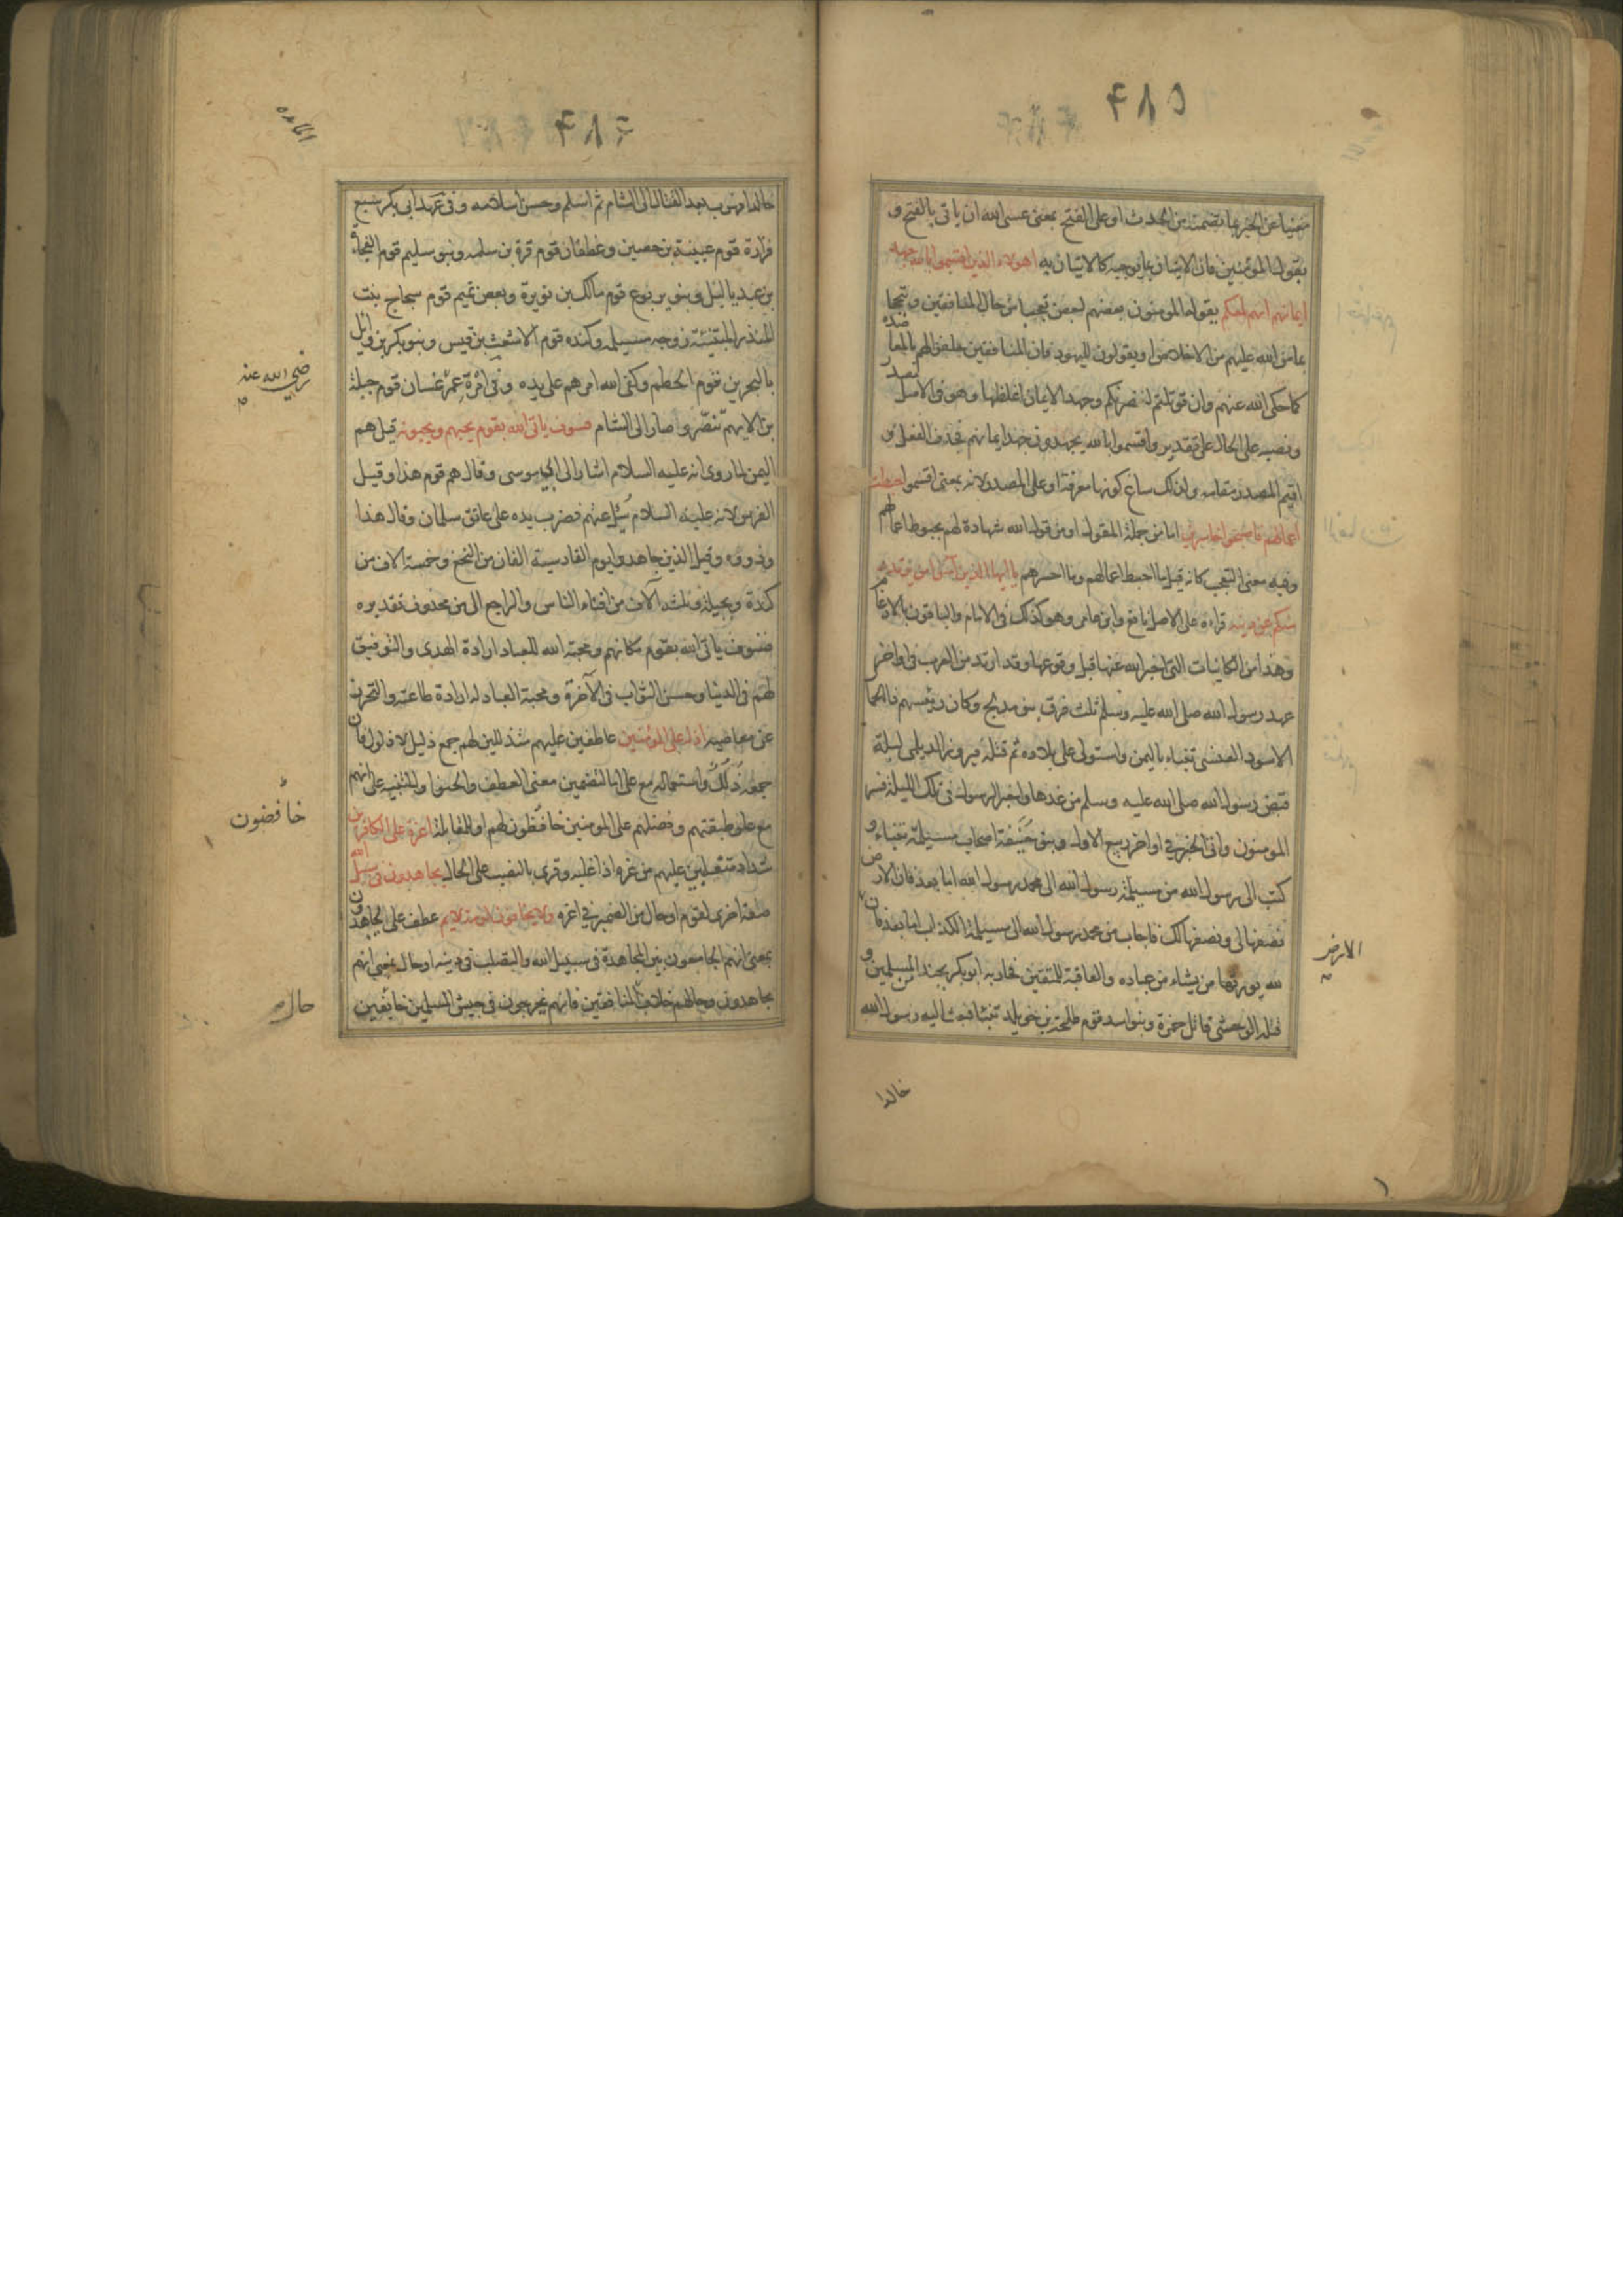 ٤٨٥
مغنيا عن الخبر بما تضمنه من الحدث او على الفتح بمعنى عسى الله ان ياتي بالفتح و
بقول المؤمنين فان الاتيان بما يوجبه كالاتيان به اهولاء الذين اقسموا بالله جهد
ايمانهم انهم لمعكم يقوله المومنون بعضهم لبعض تعجبا من حال المنافقين وتبجحا
بما من الله عليهم من الاخلاص او يقولون لليهود فان المنافقين حلفوا لهم بالمعاضدة
كما حكى الله عنهم وان قوتلتم لننصرنكم وجهد الايمان اغلظها وهو في الاصل مصدر
ونصبه على الحال على تقدير واقسموا بالله يجهدون جهد ايمانهم فحذف الفعل و
اقيم المصدر مقامه ولذلك ساغ كونها معرفة او على المصدر لانه بمعنى اقسموا حبطت
اعمالهم فاصبحوا خاسرين اما من جملة المقول او من قول الله شهادة لهم بحبوط اعمالهم
وفيه معنى التعجب كانه قيل ما احبط اعمالهم وما اخسرهم يا ايها الذين آمنوا من يرتدد
منكم عن دينه قراءة على الاصل نافع وابن عامر وهو كذلك في الامام والباقون بالادغام
وهذا من الكائنات التي اخبر الله عنها قبل وقوعها وقد ارتد من العرب في اواخر
عهد رسول الله صلى الله عليه وسلم ثلث فرق بنو مدلج وكان رئيسهم ذا الحمار
الاسود العنسي تنباء باليمن واستولى على بلاده ثم قتله فيروز الديلمي ليلة
قبض رسول الله صلى الله عليه وسلم من غدها واخبر الرسول في تلك الليلة فسر
المومنون واتى الخبر في اواخر ربيع الاول وبنو حنيفة اصحاب مسيلمة تنباء و
كتب الى رسول الله من مسيلمة رسول الله الى محمد رسول الله اما بعد فان الارض
نصفها لي ونصفها لك فاجاب من محمد رسول الله الى مسيلمة الكذاب اما بعد فان
الارض
لله يورثها من يشاء من عباده والعاقبة للمتقين فحاربه ابو بكر بجند من المسلمين و
قتله الوحشي قاتل حمزة وبنو اسد قوم طليحة بن خويلد تنبئا فبعث اليه رسول الله
خالدا
٤٨٦
المائده
خالدا فهرب بعد القتال الى الشام ثم اسلم وحسن اسلامه وفي عهد ابي بكر سبع
فزارة قوم عيينة بن حصين وغطفان قوم قرة بن سلمه وبنو سليم قوم الفجاءة
بن عبد ياليل وبنو يربوع قوم مالك بن نويرة وبعض تميم قوم سجاح بنت
المنذر المتنبئة زوجه مسيلمه وكنده قوم الاشعث بن قيس وبنو بكر بن وايل
بالبحرين قوم الحطم وكفى الله امرهم على يده وفي امرة عمر غسان قوم جبلة
رضي الله عنه
بن الايهم تنصر وصار الى الشام فسوف ياتي الله بقوم يحبهم ويحبونه قيل هم
اليمن لما روى انه عليه السلام اشار الى ابي موسى وقال هم قوم هذا وقيل
الفرس لانه عليه السلام سئل عنهم فضرب يده على عاتق سلمان وقال هذا
وذووه وقيل الذين جاهدوا يوم القادسية الفان من النخع وخمسة الاف من
كندة وبجيلة وثلثه آلاف من افناء الناس والراجع الى من محذوف تقديره
فسوف ياتي الله بقوم مكانهم ومحبة الله للعباد ارادة الهدى والتوفيق
لهم في الدنيا وحسن الثواب في الآخرة ومحبة العباد له ارادة طاعته والتحرز
عن معاصيه اذلة على المؤمنين عاطفين عليهم متذللين لهم جمع ذليل لا ذلول فان
جمعه ذلل واستعماله مع على اما لتضمين معنى العطف والحنو او للتنبيه على انهم
مع علو طبقتهم وفضلهم على المومنين خافظون لهم او للمقابلة اعزة على الكافرين
خافضون
شداد متغلبين عليهم من عزه اذا غلبه وقرى بالنصب على الحال يجاهدون في سبيل الله
صفة اخرى لقوم او حال من الضمير في اعزه ولا يخافون لومة لايم عطف على يجاهدون
بمعنى انهم الجامعون بين المجاهدة في سبيل الله والتصلب في دينه او حال بمعنى انهم
يجاهدون وحالهم خلاف المنافقين فانهم يخرجون في جيش المسلمين خائفين
حال